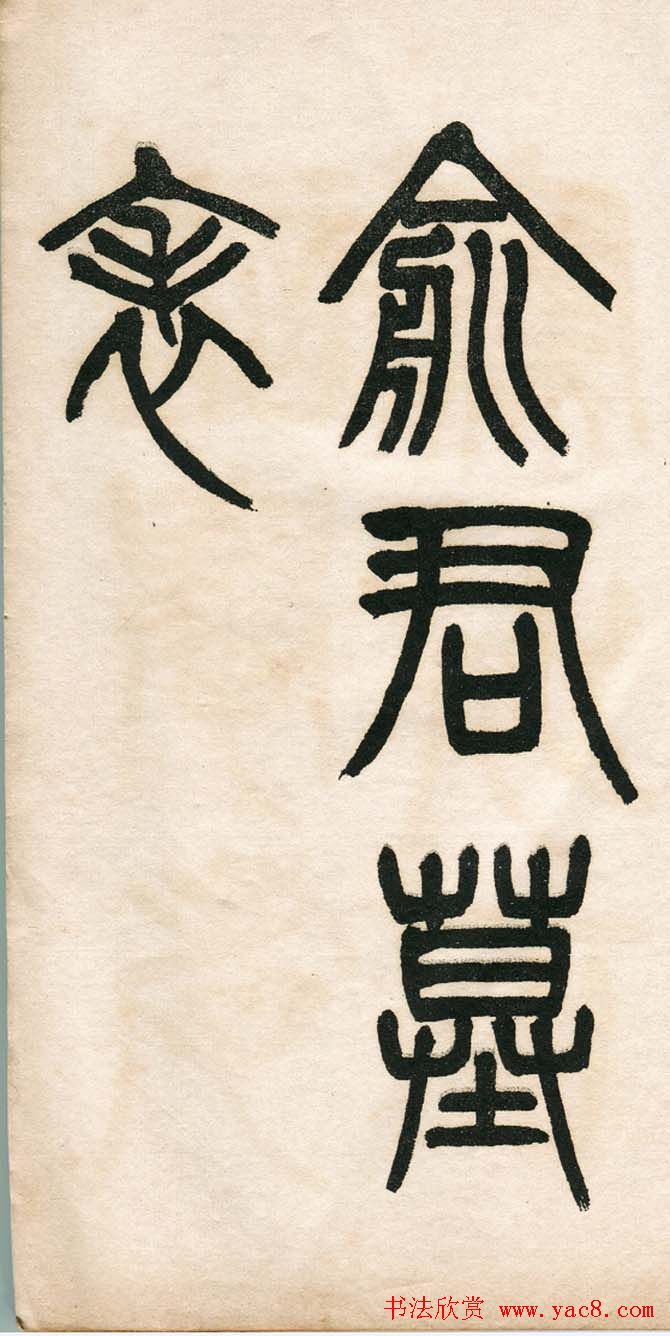 俞君墓
表
书法欣赏 www.yac8.com